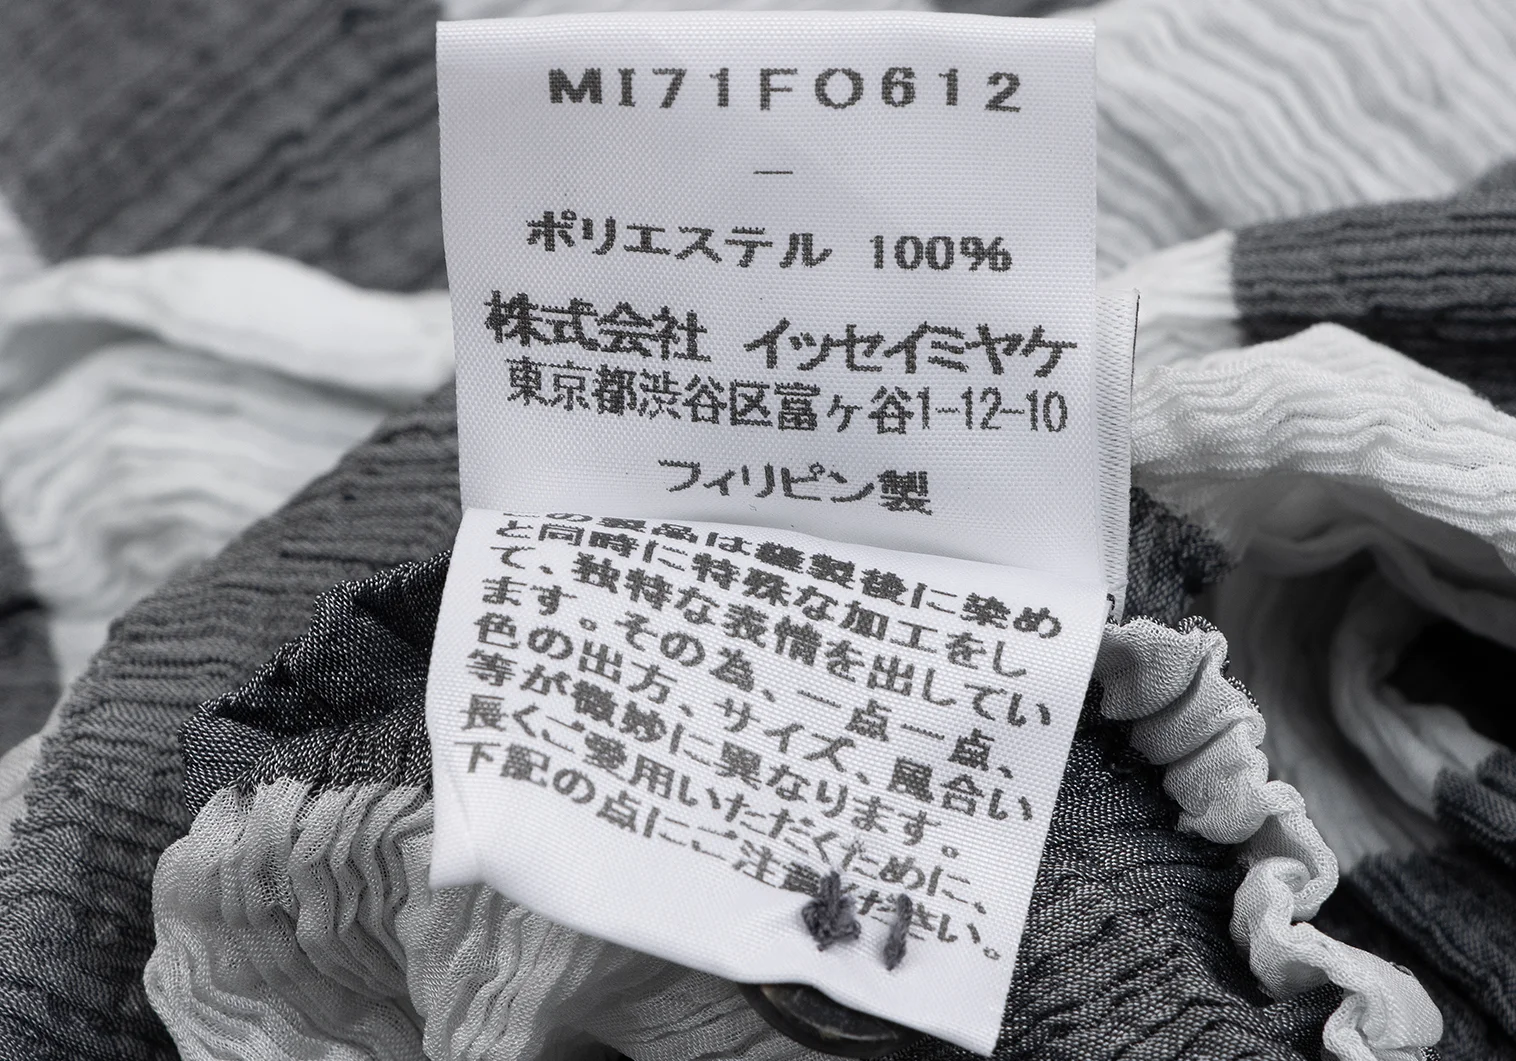 MI71FO612
—
ポリエステル 100%
株式会社 イッセイミヤケ
東京都渋谷区富ヶ谷1-12-10
フィリピン製
この製品は縫製後に染め
と同時に特殊な加工をし
て、独特な表情を出してい
ます。その為、一点一点、
色の出方、サイズ、風合い
等が微妙に異なります。
長くご愛用いただくために、
下記の点にご注意ください。